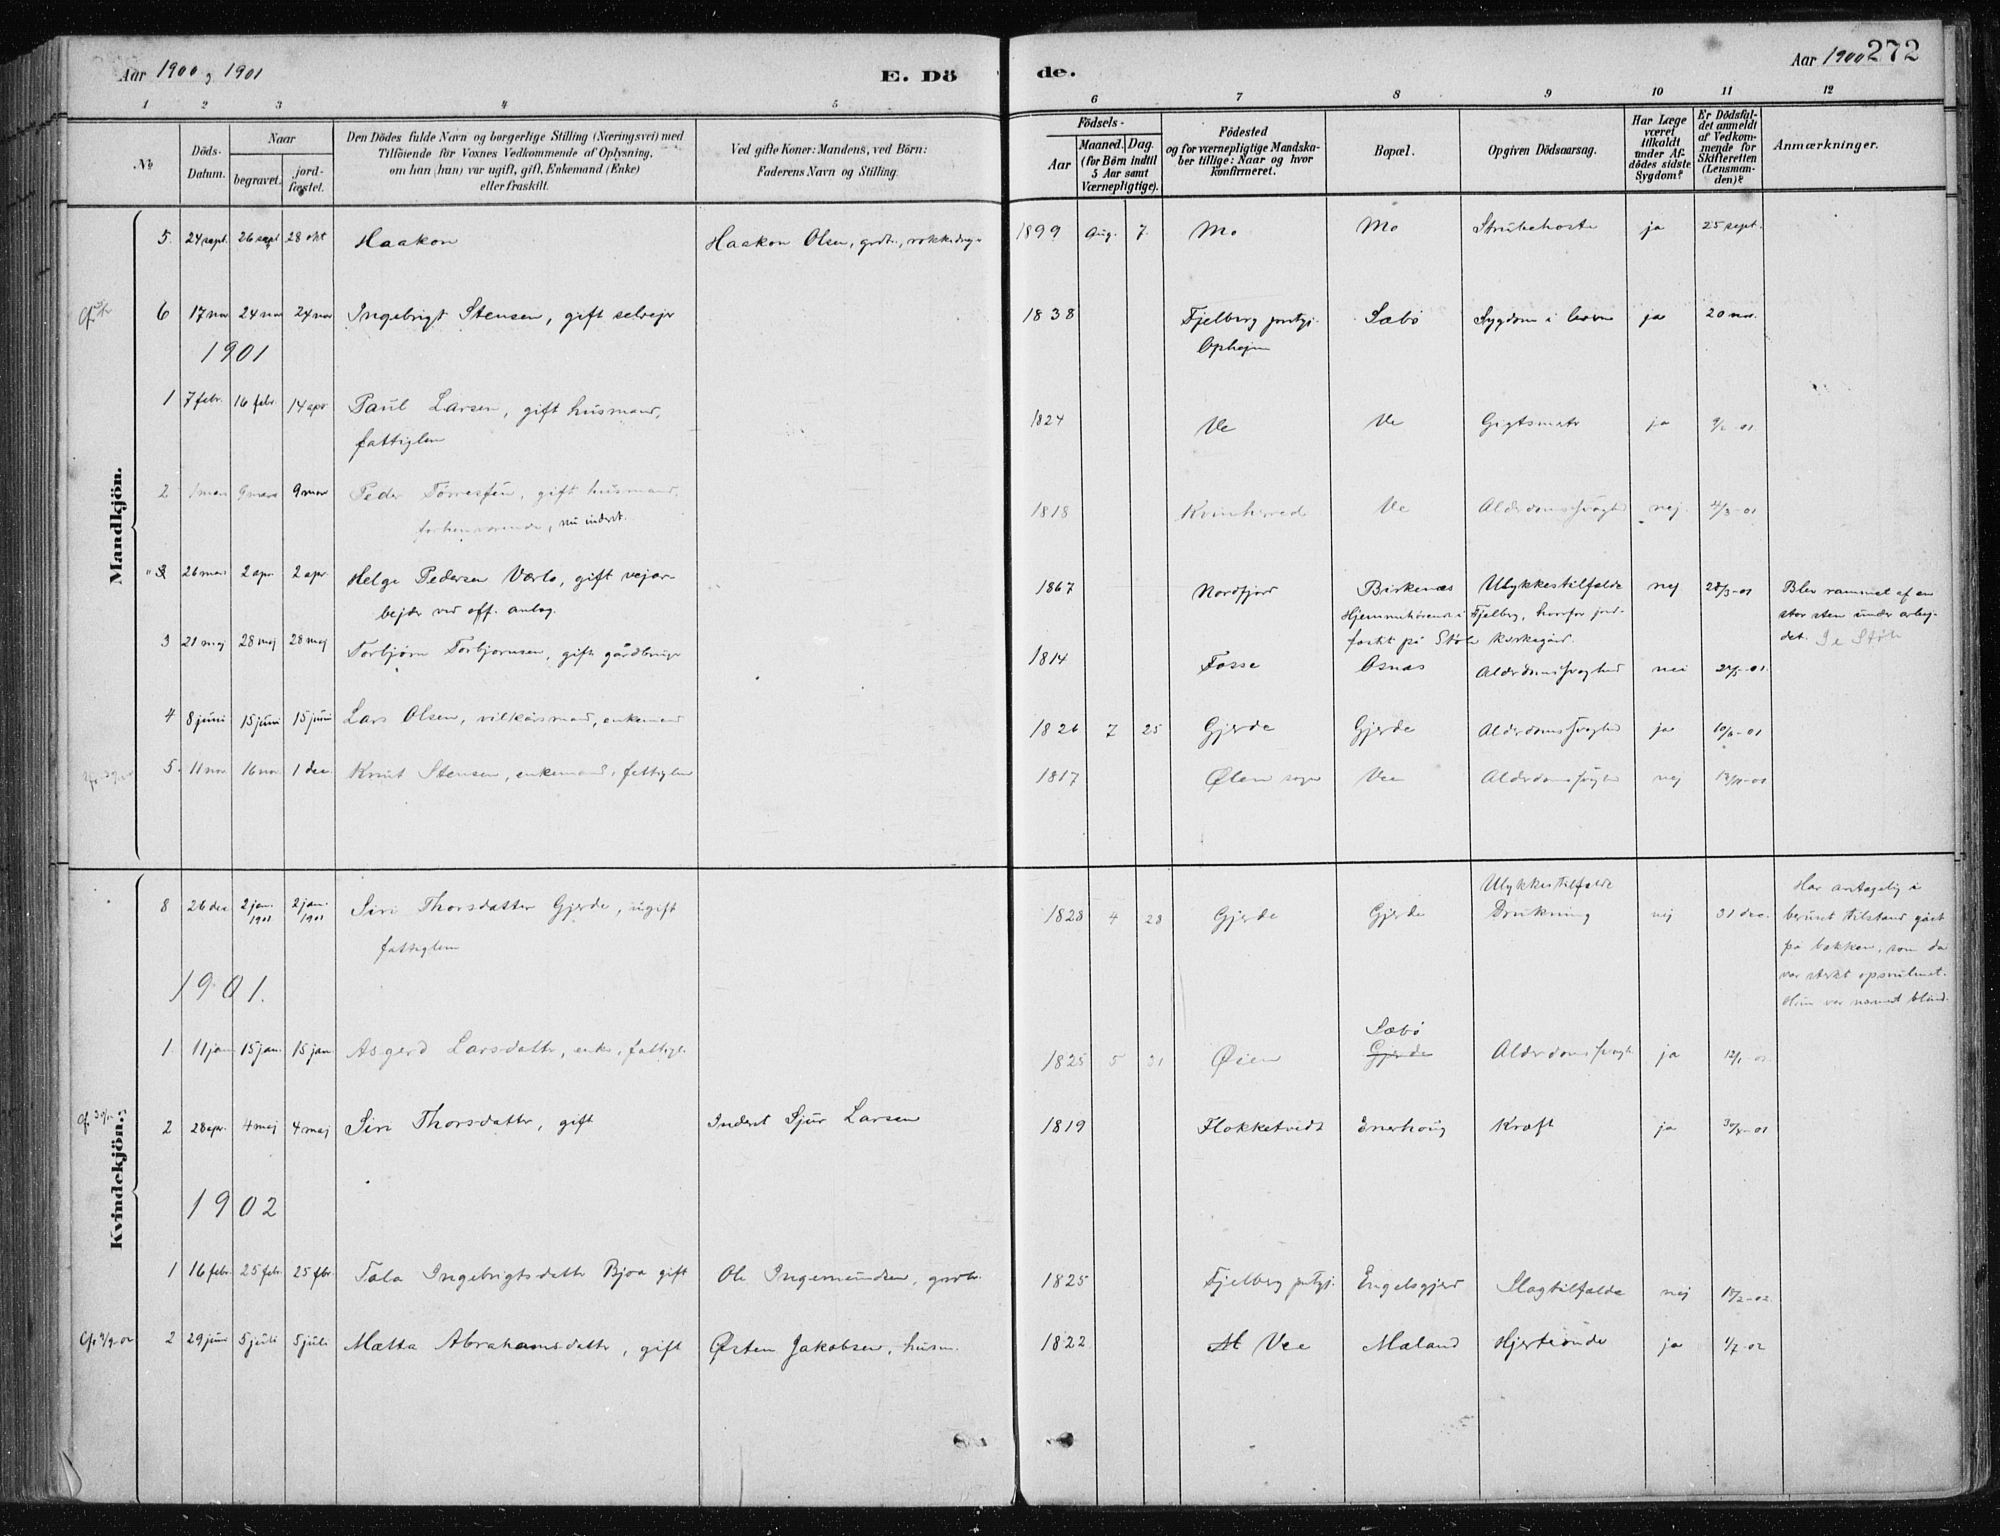 Aar 1900 og 1901
E. Dö
de.
Aar 1900 272
1 2 3 4 5 6 7 8 9 10 11 12
No
Döds-Datum.
Naar
begravet.
jord-fæstet.
Den Dödes fulde Navn og borgerlige Stilling (Næringsvei) med
Tilföiende for Voxnes Vedkommende af Oplysning,
om han (hun) var ugift, gift, Enkemand (Enke)
eller fraskilt.
Ved gifte Koner: Mandens, ved Börn:
Faderens Navn og Stilling.
Födsels-
Aar
Maaned. Dag.
(for Börn indtil
5 Aar samt
Værnepligtige).
Födested
og for værnepligtige Mandska-
ber tillige: Naar og hvor
konfirmeret.
Bopæl.
Opgiven Dödsaarsag.
Har Læge
været
tilkaldt
under Af-
dödes sidste
Sygdom?
Er Dödsfal-
det anmeldt
af Vedkom-
mende for
Skifteretten
(Lensman-
den)?
Anmærkninger.
Mandkjön.
5. 24 sept. 26 sept 28 okt Haakon Haakon Olsen, grdbr., rokkedreyer 1899 Aug. 7. Mo Mo Strubehoste ja 25 sept.
6 17 nov 24 nov 24 nov Ingebrigt Stensen, gift selvejer 1838 Fjelberg prstgj. Sæbö Sygdom i ja 20 nov.
Opheim
1901
1 7 febr. 16 febr. 14 apr Paul Larsen, gift husmand, 1824 Ve Ve ja 9/2-01
fattiglem
2 1 mars 9 mars 9 mar Peder Tørresfen, gift husmand, 1818 Kvinherred Ve Alderdomssvaghed nej. 4/3-01
forhenværende, nu inderst.
"3 26 mars 2 apr. 2 apr. Helge Pedersen Værlo, gift vejar- 1867 Nordfjord Birkenæs Ulykkestilfælde nej 28/3-01 Blev rammet af en
bejder ved off. anlæg. Hjemmehörende i Fjelberg, hvorfor jord- stor sten under arbej-
fæstet på Støle kirkegård det.
3 21 maj 28 maj 28 maj Torbjørn Torbjørnsen, gift gårdbruger 1814 Fosse Osnæs Alderdomssvaghed nei 24/5-01
4 8 juni 15 juni 15 juni Lars Olsen, vilkårsmand, enkemand 1826 7 25 Gjerde Gjerde Alderdomssvaghed ja 10/6-01
5. 11 nov 16 nov 1 dec Knut Stensen, enkemand, fattiglem 1817 Ølen sogn Vee Alderdomssvaghed nej 12/11-01
Kvindekjön.
8 26 dec 2 jan. 1901 2 jan. 1901 Siri Thorsdatter Gjerde, ugift 1828 4 28 Gjerde Gjerde Ulykkestilfælde Drukning nej 31 dec. Har antagelig i
fattiglem beruset tilstand gået
på bækken, som da
var sterkt opsvulmet.
Hun var næmest blind.
1901.
1. 11 jan 15 jan. 15 jan Asgerd Larsdatter, enke, fattigl. 1825 5 31 Øien Sæbö Gjerde Alderdomssvaghed ja 12/1-01
2 28 apr. 4 maj 4 maj Siri Thorsdatter, gift Inderst Sjur Larsen 1819 Flokketvedt Enerhoug Kræft ja 30/4-01
1902
1 16 febr. 25 febr. 25 fbr. Tala Ingebrigtsdatter Bjoa gift Ole Ingemundsen, grdbr. 1825 Fjelberg prstgj. Engelsgjerd Slagtilfælde nej 18/2-02
Cfr 3/9-02 2 29 juni 5 juli 5 juli Mætta Abrahamsdatter, gift Østen Jakobsen, husm. 1822 M Vee Mæland Hjerteonde ja 1/7-02